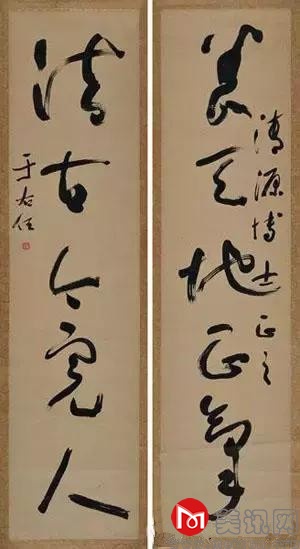 養天地正氣
源博士正之
法古今完人
于右任
美讯网